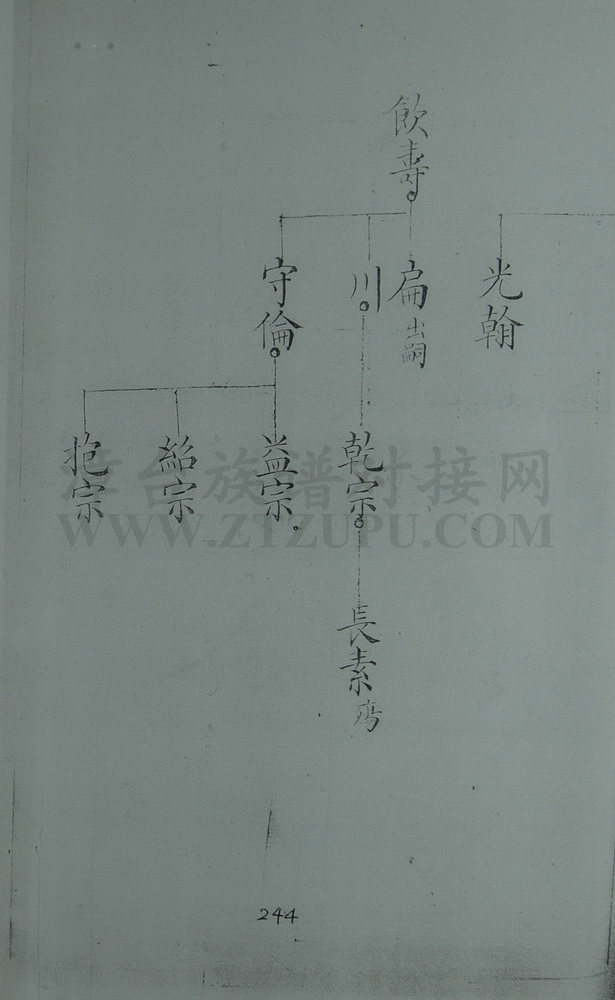 飲壽
光翰
扁 出嗣
川
守倫
乾宗
益宗
紹宗
抱宗
長素 殤
漳台族谱对接网
WWW.ZTZUPU.COM
244